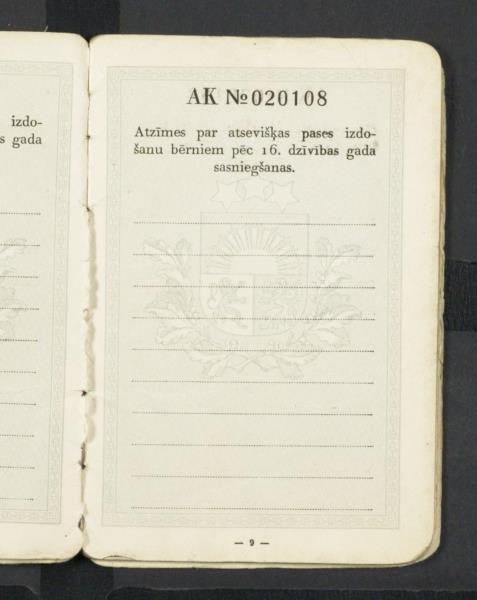 izdo-
s gada
AK № 020108
Atzīmes par atsevišķas pases izdo-
šanu bērniem pēc 16. dzīvības gada
sasniegšanas.
— 9 —